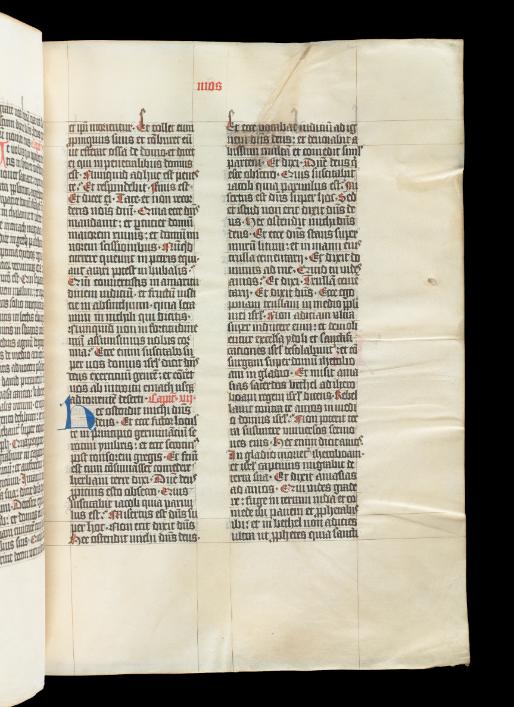 mos
et ip̄i morientur · Et tollet eum
ꝓpinquus suus et cōburet eū
ut efferat ossa de domo · et dicet
ei qui in penetralibus domus
est · Nunquid adhuc est penes
te · Et respondebit · finis est ·
Et dicet ei · Tace · et non recor
deris nōis dn̄i · Quia ecce dn̄s
mandauit : et ꝑcuciet domū
maiorem ruinis : et domū mi
norem scissionibus · Nūqd
currere queunt in petris equi
aut arari potest in bubalis :
Qm̄ conuertistis in amaritu
dinem iudiciū · et fructū iusti
cie in absinthium · qui leta
mini in nichili qui dicitis ·
Nunquid non in fortitudine
nr̄a assumsimus nobis cor
nua : Ecce enim suscitabo su
per uos domus isrl̄ dicit dn̄s
deus exercituū gentē : et cōteret
uos ab introitu emath usqꝫ
ad torrentē deserti · Capm̄ vij ·
Hec ostendit michi dn̄s
deus · Et ecce fictor locuste
in principio germinanciū se
rotini ymbris : et ecce seroti9
post tonsorem gregis · Et factū
est cum cōsummasset comedere
herbam terre dixi · Dn̄e deus
ꝓpicius esto obsecro · Quis
suscitabit iacob quia paruu
lus est : Misertus est dn̄s su
per hoc · Non erit dixit dn̄s
Hec ostendit michi dn̄s deus ·
Et ecce uocabat iudiciū ad ig
nem dn̄s deus : et deuorabit a
bissum multā et comedit simꝉ
partem · Et dixi · Dn̄e deus q̄
esce obsecro · Quis suscitabit
iacob quia paruulus est · Mi
sertus est dn̄s super hoc · Sed
et istud non erit dixit dn̄s de
us · Hec ostendit michi dn̄s
deus · Et ecce dn̄s stans super
murū litum : et in manu eius
trulla cementarij · Et dixit do
minus ad me · Quid tu uides
amos : Et dixi · Trullā cemē
tarij · Et dixit dn̄s · Ecce ego
ponam trullam in medio ppl̄i
mei isrl̄ · Non adiciam ultra
super inducere eum : et demoli
entur excelsa ydoli et sanctifi
cationes isrl̄ desolabunt̄ : et cō
surgam super domū iheroboam
in gladio · Et misit ama
sias sacerdos bethel ad ieroboam
regem isrl̄ dicens · Rebel
lauit contra te amos in medio
domus isrl̄ · Non poterit ter
ra sustinere uniuersos sermo
nes eius · Hec enim dicit amos ·
In gladio moriet̄ iheroboam ·
et isrl̄ captiuus migrabit de
terra sua · Et dixit amasias
ad amos · Qui uides grade
re : fuge in terram iuda et co
mede ibi panem et ꝓphetabis
ibi : et in bethel non adicies
ultra ut ꝓphetes quia sancti